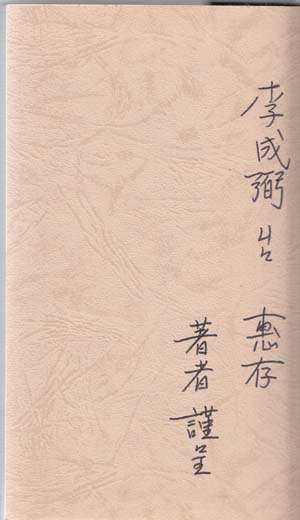 李成弼 兄 惠存
著者 謹呈